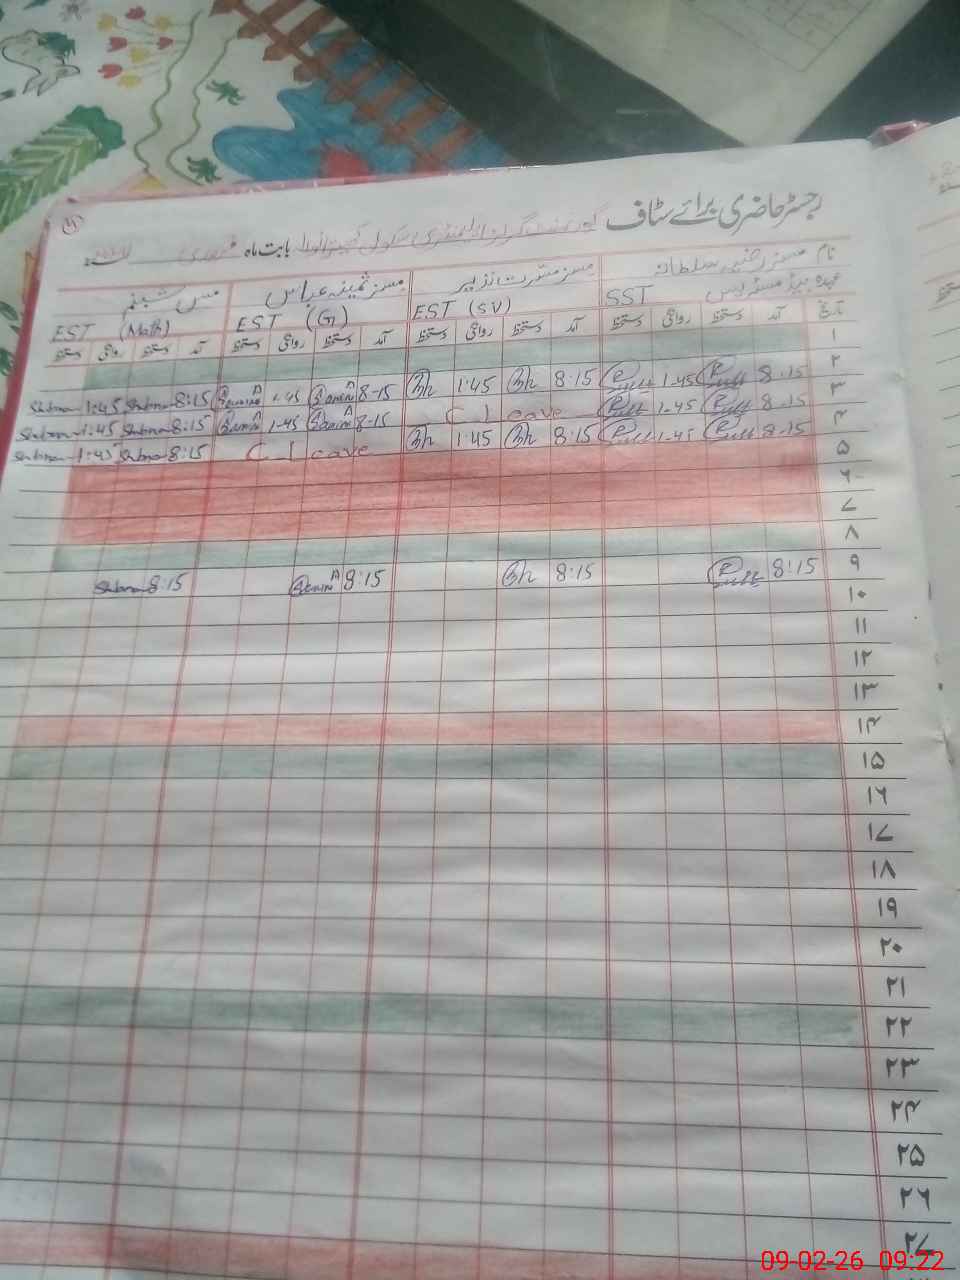 رجسٹر حاضری برائے سٹاف گورنمنٹ گرلز ایلیمنٹری سکول بابت ماہ فروری
نام مسز سلطانہ مسز مسرت نذیر مسز ثمینہ عباس مس شبنم
عہدہ ہیڈ مسٹریس SST EST (SV) EST (G) EST (Math)
تاریخ آمد دستخط روانگی دستخط آمد دستخط روانگی دستخط آمد دستخط روانگی دستخط آمد دستخط روانگی دستخط
۱
۲ 8:15 1-45 8:15 1:45 8-15 1-45 8:15 Shabnam 1:45 Shabnam
۳ 8:15 1-45 C l eave 8-15 1-45 8:15 Shabnam 1:45 Shabnam
۴ 8:15 1-45 8:15 1:45 C l eave 8:15 Shabnam 1:45 Shabnam
۵
۶
۷
۸
۹ 8:15 8:15 8:15 8:15 Shabnam
۱۰
۱۱
۱۲
۱۳
۱۴
۱۵
۱۶
۱۷
۱۸
۱۹
۲۰
۲۱
۲۲
۲۳
۲۴
۲۵
۲۶
۲۷
09-02-26 09:22